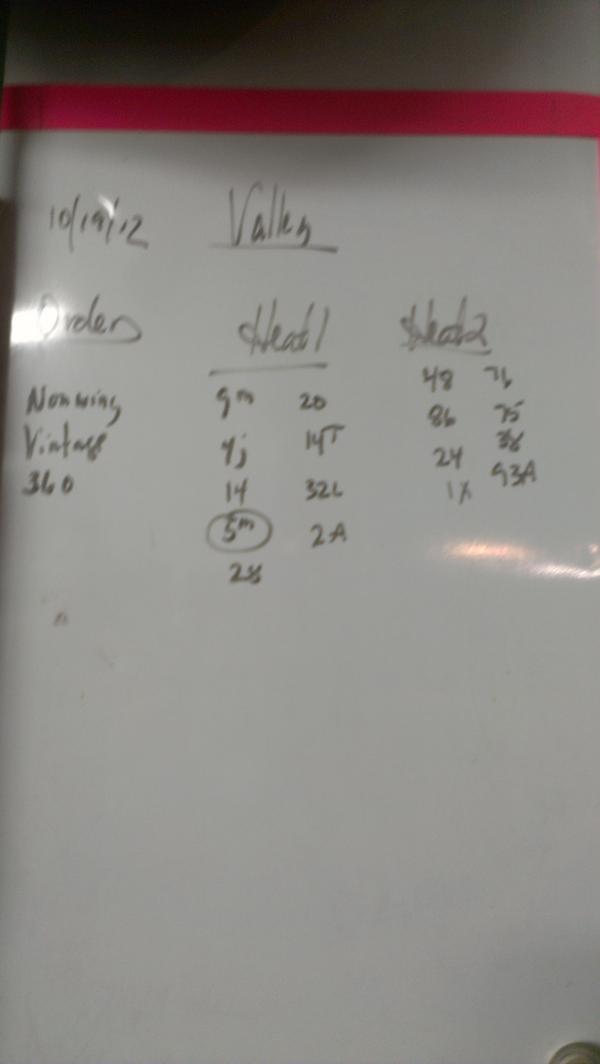 10/19/12 Valley
Order Heat 1 Heat 2
Nonwing 9m 20 48 76
Vintage yj 14T 86 75
360 14 32L 24 38
5m 2A 1X 93A
28